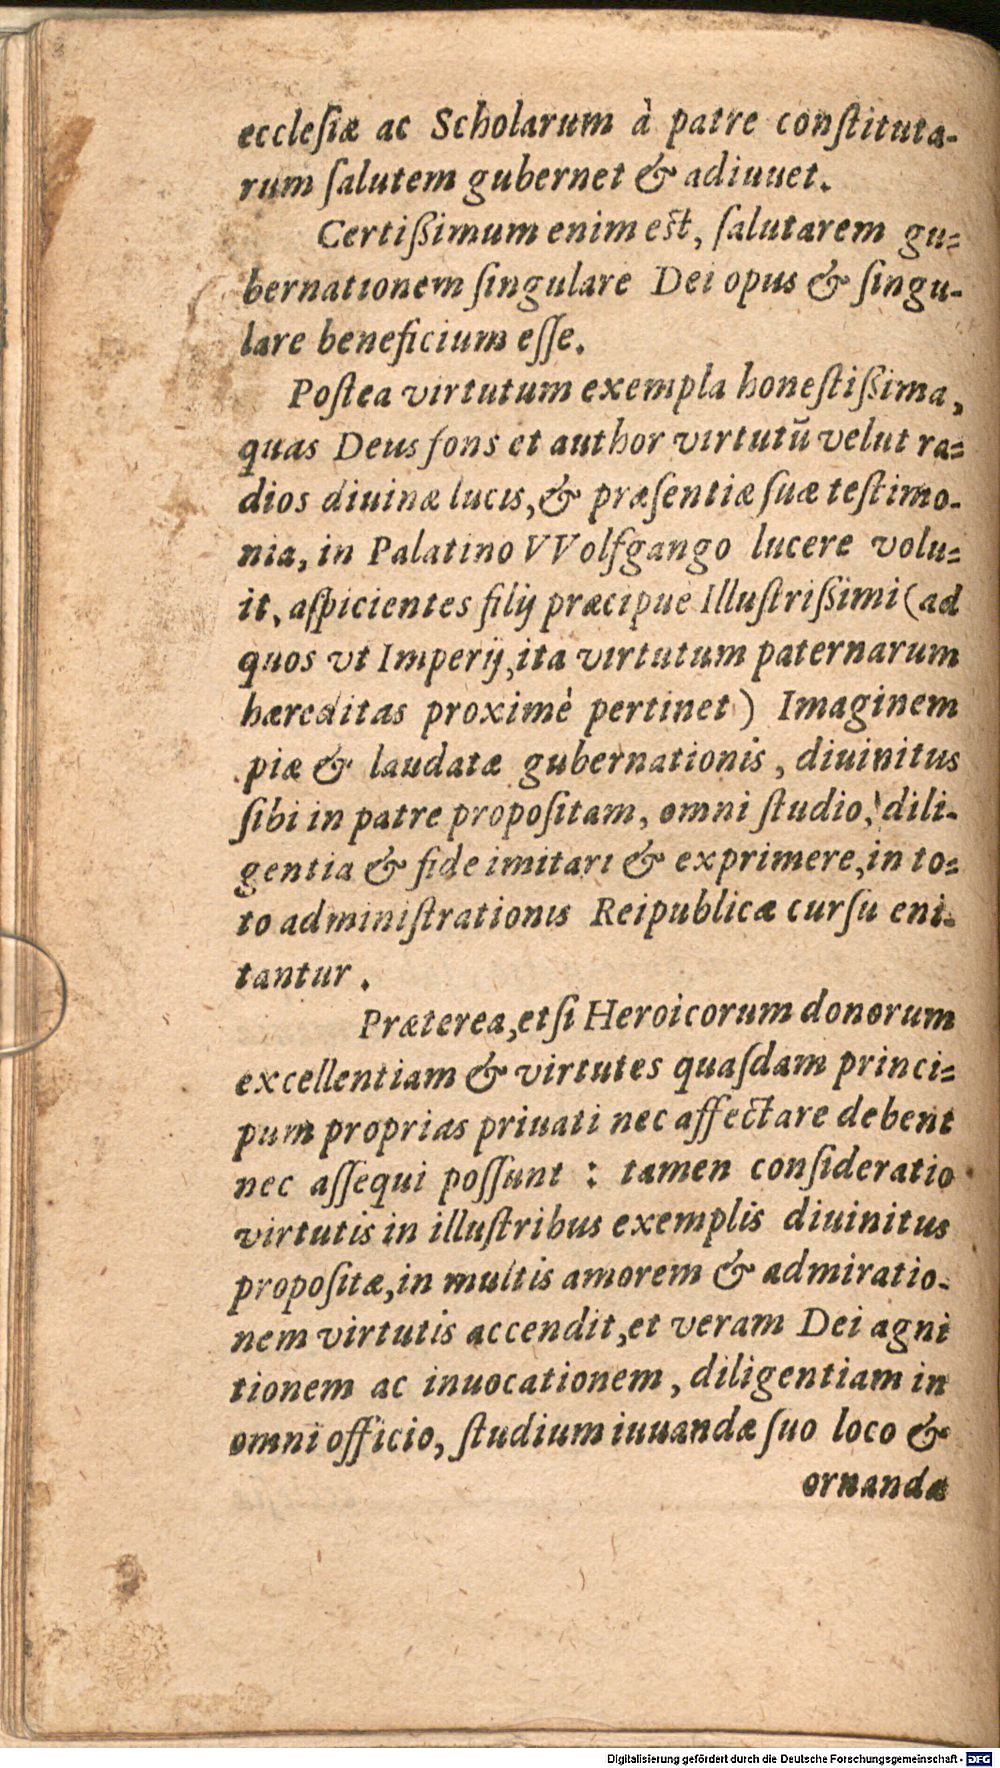 ecclesiæ ac Scholarum à patre constituta-
rum salutem gubernet & adiuuet.
Certißimum enim est, salutarem gu=
bernationem singulare Dei opus & singu-
lare beneficium esse.
Postea virtutum exempla honestißima,
quas Deus fons et author virtutū velut ra=
dios diuinæ lucis, & præsentiæ suæ testimo-
nia, in Palatino VVolfgango lucere volu=
it, aspicientes filij præcipue Illustrißimi (ad
quos vt Imperij, ita virtutum paternarum
hæreditas proximè pertinet) Imaginem
piæ & laudatæ gubernationis, diuinitus
sibi in patre propositam, omni studio, dili-
gentia & fide imitari & exprimere, in to=
to administrationis Reipublicæ cursu eni-
tantur.
Præterea, etsi Heroicorum donorum
excellentiam & virtutes quasdam princi=
pum proprias priuati nec affectare debent
nec assequi possunt : tamen consideratio
virtutis in illustribus exemplis diuinitus
propositæ, in multis amorem & admiratio-
nem virtutis accendit, et veram Dei agni
tionem ac inuocationem, diligentiam in
omni officio, studium iuuandæ suo loco &
ornandæ
Digitalisierung gefördert durch die Deutsche Forschungsgemeinschaft - DFG